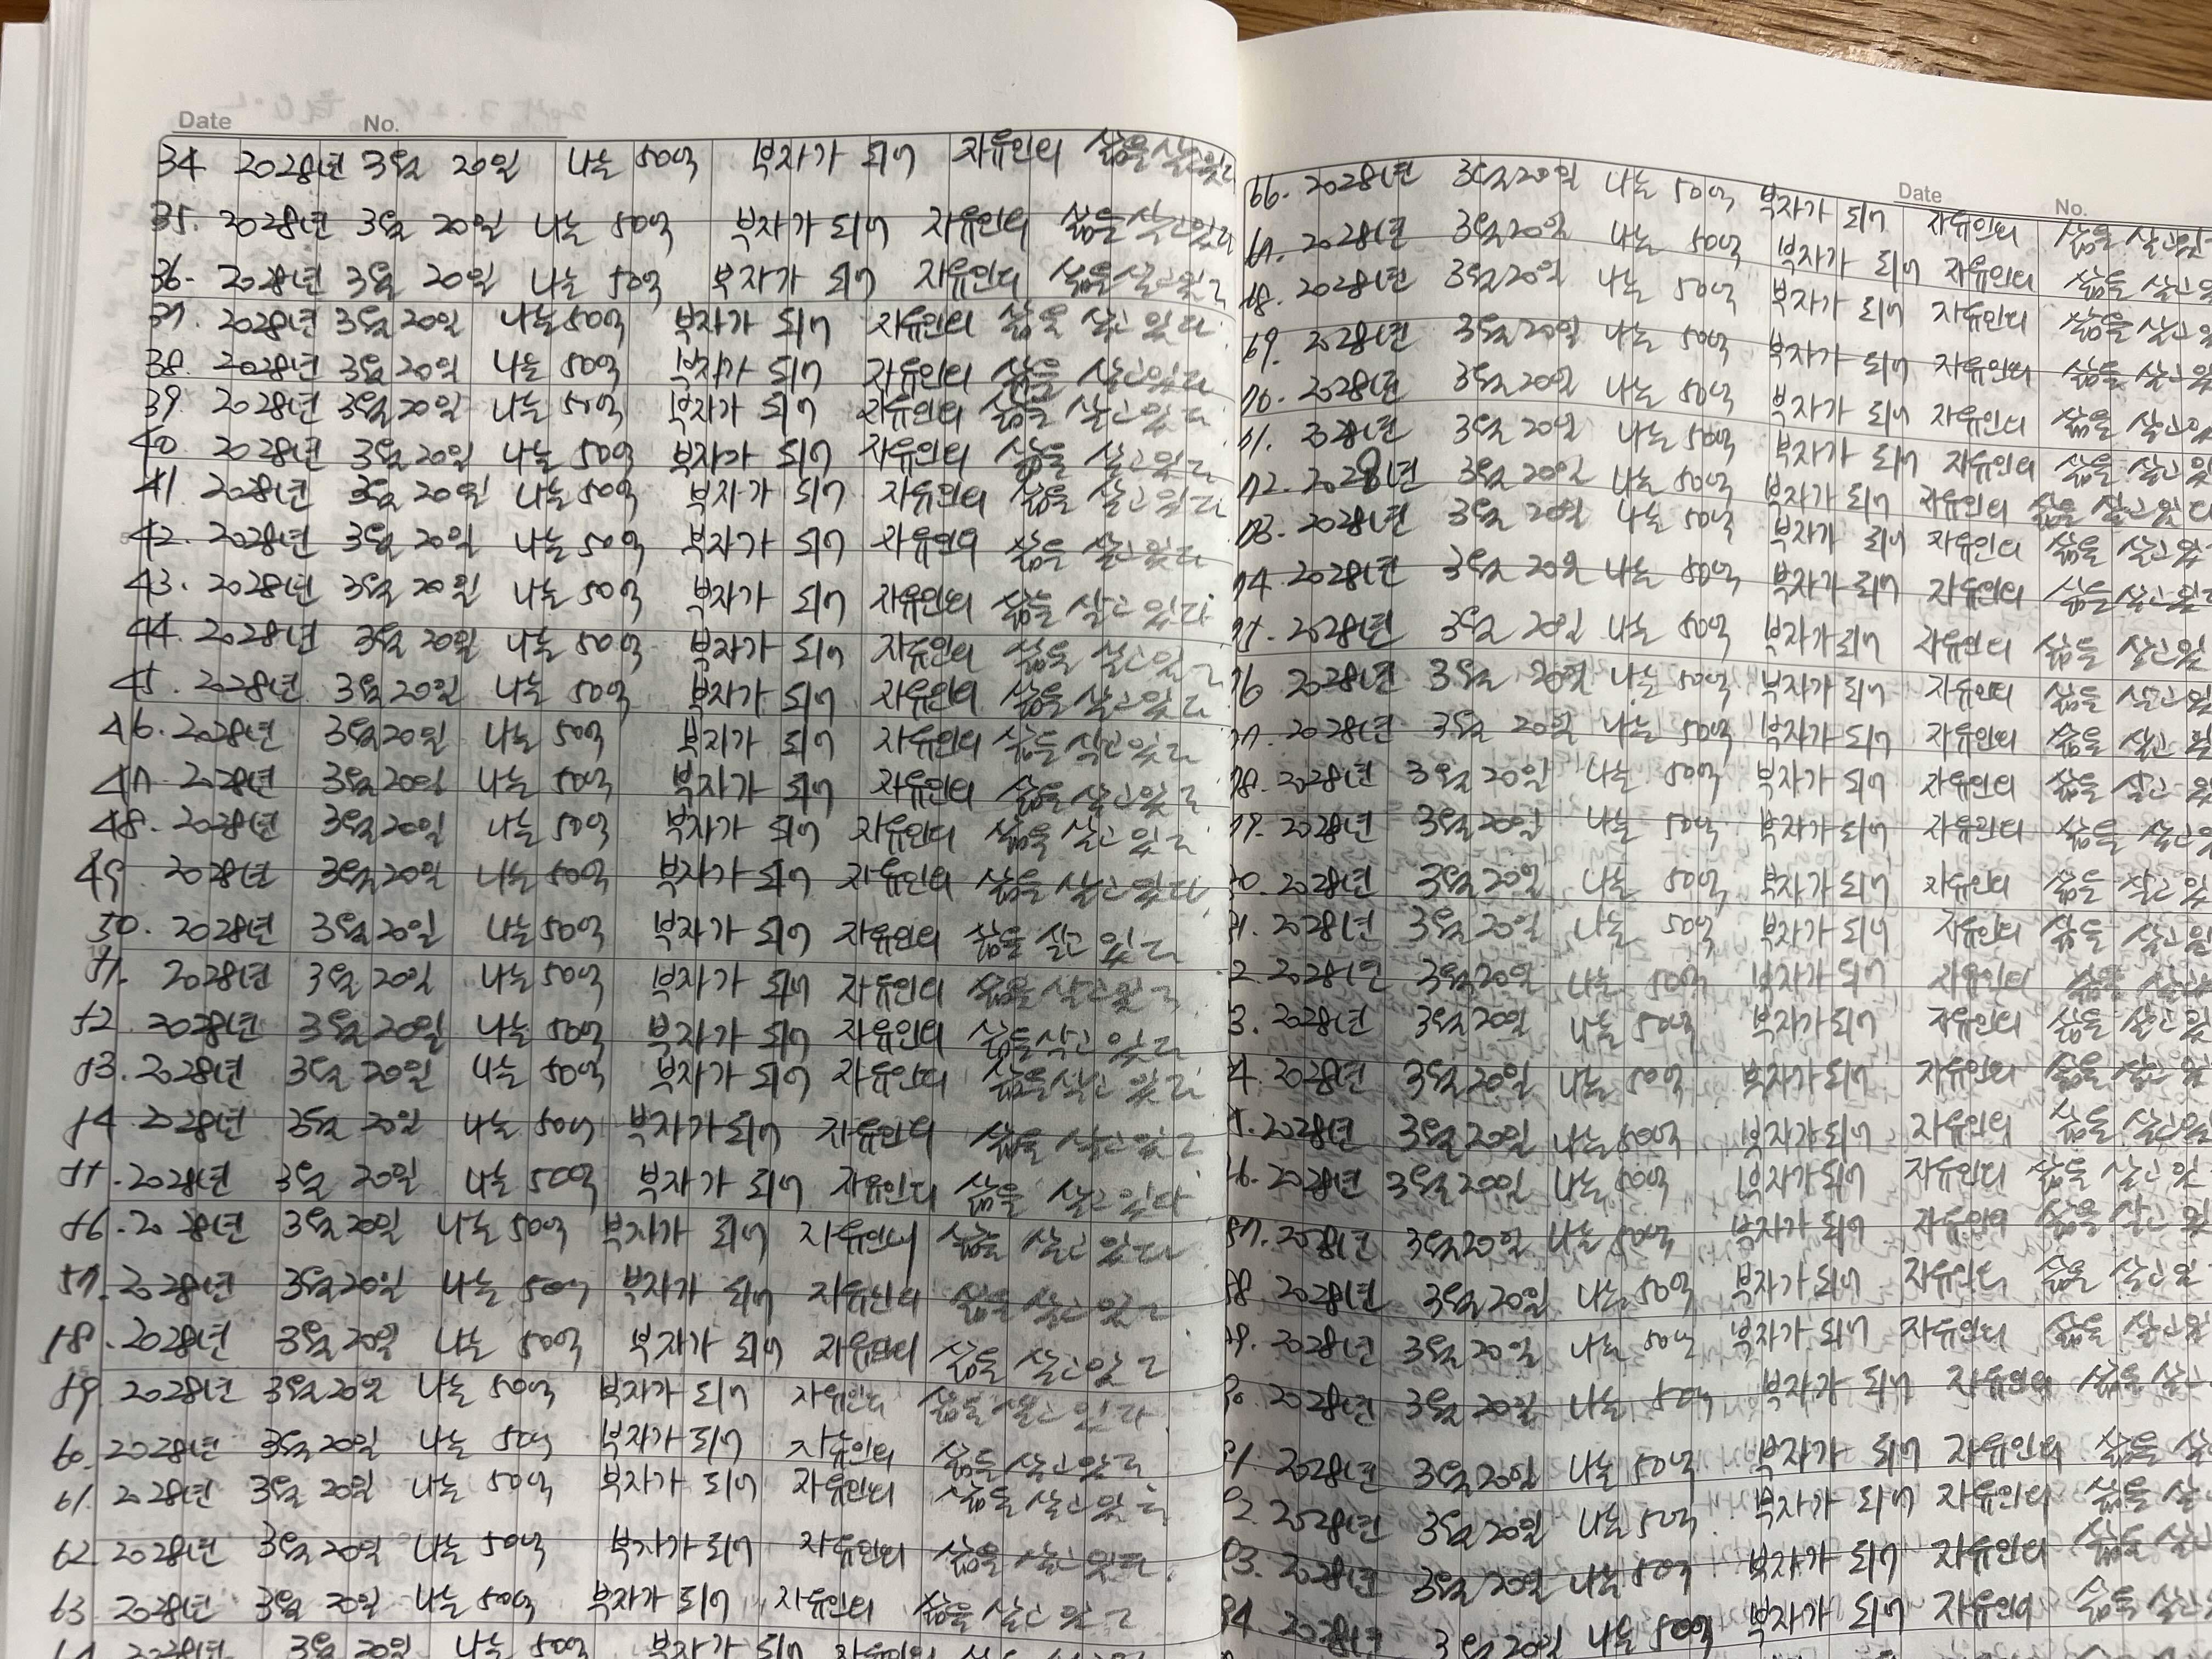 Date No.
34 2028년 3월 20일 나는 50억 부자가 되어 자유인의 삶을 살고있다
35. 2028년 3월 20일 나는 50억 부자가 되어 자유인의 삶을 살고있다
36- 2028년 3월 20일 나는 50억 부자가 되어 자유인의 삶을 살고있다
37. 2028년 3월 20일 나는 50억 부자가 되어 자유인의 삶을 살고 있다
38. 2028년 3월 20일 나는 50억 부자가 되어 자유인의 삶을 살고있다
39. 2028년 3월 20일 나는 50억 부자가 되어 자유인의 삶을 살고있다
40. 2028년 3월 20일 나는 50억 부자가 되어 자유인의 삶을 살고있다
41. 2028년 3월 20일 나는 50억 부자가 되어 자유인의 삶을 살고있다
42. 2028년 3월 20일 나는 50억 부자가 되어 자유인의 삶을 살고있다
43. 2028년 3월 20일 나는 50억 부자가 되어 자유인의 삶을 살고 있다
44. 2028년 3월 20일 나는 50억 부자가 되어 자유인의 삶을 살고있다
45. 2028년 3월 20일 나는 50억 부자가 되어 자유인의 삶을 살고있다
46. 2028년 3월 20일 나는 50억 부자가 되어 자유인의 삶을 살고있다
47 2028년 3월 20일 나는 50억 부자가 되어 자유인의 삶을 살고있다
48. 2028년 3월 20일 나는 50억 부자가 되어 자유인의 삶을 살고있다
49. 2028년 3월 20일 나는 50억 부자가 되어 자유인의 삶을 살고있다
50. 2028년 3월 20일 나는 50억 부자가 되어 자유인의 삶을 살고 있다
51. 2028년 3월 20일 나는 50억 부자가 되어 자유인의 삶을 살고있다
52. 2028년 3월 20일 나는 50억 부자가 되어 자유인의 삶을 살고 있다
53. 2028년 3월 20일 나는 50억 부자가 되어 자유인의 삶을 살고 있다
54 2028년 3월 20일 나는 50억 부자가 되어 자유인의 삶을 살고있다
55. 2028년 3월 20일 나는 50억 부자가 되어 자유인의 삶을 살고있다
56. 2028년 3월 20일 나는 50억 부자가 되어 자유인의 삶을 살고 있다
57. 2028년 3월 20일 나는 50억 부자가 되어 자유인의 삶을 살고 있다
58. 2028년 3월 20일 나는 50억 부자가 되어 자유인의 삶을 살고있다
59. 2028년 3월 20일 나는 50억 부자가 되어 자유인의 삶을 살고 있다
60. 2028년 3월 20일 나는 50억 부자가 되어 자유인의 삶을 살고있다
61. 2028년 3월 20일 나는 50억 부자가 되어 자유인의 삶을 살고있다
62. 2028년 3월 20일 나는 50억 부자가 되어 자유인의 삶을 살고있다.
63 2028년 3월 20일 나는 50억 부자가 되어 자유인의 삶을 살고 있다
64 2028년 3월 20일 나는 50억 부자가 되어 자유인의
Date No.
66. 2028년 3월20일 나는 50억 부자가 되어 자유인의 삶을 살고있
67. 2028년 3월20일 나는 50억 부자가 되어 자유인의 삶을 살고있
68. 2028년 3월20일 나는 50억 부자가 되어 자유인의 삶을 살고있
69. 2028년 3월20일 나는 50억 부자가 되어 자유인의 삶을 살고있
70. 2028년 3월20일 나는 50억 부자가 되어 자유인의 삶을 살고있
71. 2028년 3월20일 나는 50억 부자가 되어 자유인의 삶을 살고있
72. 2028년 3월 20일 나는 50억 부자가 되어 자유인의 삶을 살고있다
73. 2028년 3월 20일 나는 50억 부자가 되어 자유인의 삶을 살고있
74. 2028년 3월 20일 나는 50억 부자가 되어 자유인의 삶을 살고있다
75. 2028년 3월 20일 나는 50억 부자가되어 자유인의 삶을 살고있
76 2028년 3월 20일 나는 50억 부자가 되어 자유인의 삶을 살고있
77. 2028년 3월 20일 나는 50억 부자가 되어 자유인의 삶을 살고 있
78. 2028년 3월 20일 나는 50억 부자가 되어 자유인의 삶을 살고 있
79. 2028년 3월 20일 나는 50억 부자가 되어 자유인의 삶을 살고있
80. 2028년 3월 20일 나는 50억 부자가 되어 자유인의 삶을 살고 있
81. 2028년 3월 20일 나는 50억 부자가 되어 자유인의 삶을 살고있
2. 2028년 3월20일 나는 50억 부자가 되어 자유인의 삶을 살고있
3. 2028년 3월20일 나는 50억 부자가되어 자유인의 삶을 살고있
4. 2028년 3월20일 나는 50억 부자가 되어 자유인의 삶을 살고있
5. 2028년 3월 20일 나는 50억 부자가되어 자유인의 삶을 살고있
86. 2028년 3월20일 나는 50억 부자가되어 자유인의 삶을 살고 있
87. 2028년 3월20일 나는 50억 부자가 되어 자유인의 삶을 살고 있
88. 2028년 3월 20일 나는 50억 부자가 되어 자유인의 삶을 살고있
89. 2028년 3월 20일 나는 50억 부자가 되어 자유인의 삶을 살고있
90. 2028년 3월 20일 나는 50억 부자가 되어 자유인의 삶을 살고
91. 2028년 3월20일 나는 50억 부자가 되어 자유인의 삶을 살
92. 2028년 3월 20일 나는 50억 부자가 되어 자유인의 삶을 살
93. 2028년 3월 20일 나는 50억 부자가 되어 자유인의 삶을 살
94. 2028년 3월 20일 나는 50억 부자가 되어 자유인의 삶을 살고